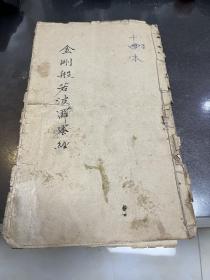 十四本
金刚般若波羅蜜經